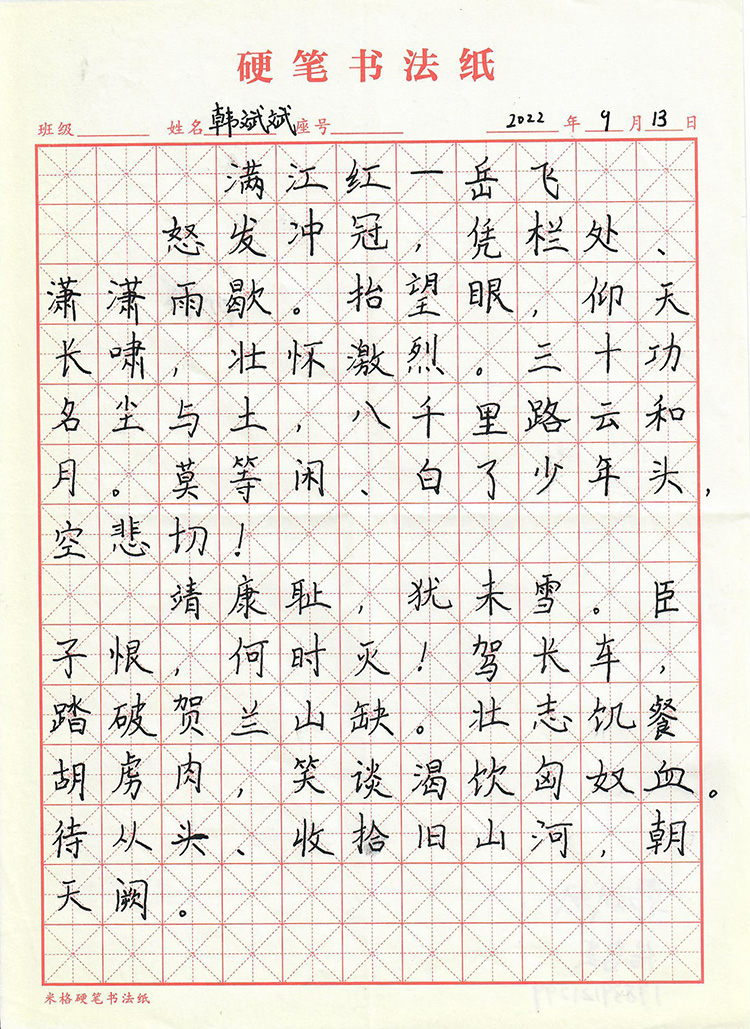 硬笔书法纸
班级 姓名 韩斌斌 座号 2022 年 9 月 13 日
满江红一岳飞
怒发冲冠,凭栏处、
潇潇雨歇。抬望眼,仰天
长啸,壮怀激烈。三十功
名尘与土,八千里路云和
月。莫等闲、白了少年头,
空悲切!
靖康耻,犹未雪。臣
子恨,何时灭!驾长车,
踏破贺兰山缺。壮志饥餐
胡虏肉,笑谈渴饮匈奴血。
待从头、收拾旧山河,朝
天阙。
米格硬笔书法纸